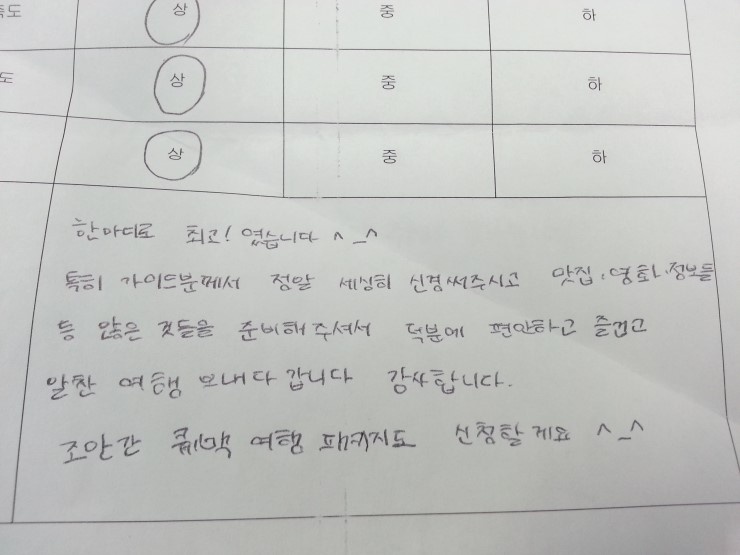 족도 상 중 하
도 상 중 하
상 중 하
한마디로 최고! 였습니다 ^_^
특히 가이드분께서 정말 세심히 신경써주시고 맛집, 영화, 정보들
등 많은 것들을 준비해주셔서 덕분에 편안하고 즐겁고
알찬 여행 보내다 갑니다 감사합니다.
조만간 퀘백 여행 패키지도 신청할게요 ^_^